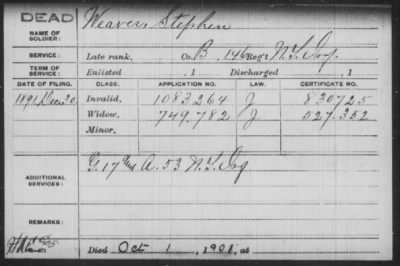 DEAD
NAME OF SOLDIER: Weaver, Stephen
SERVICE: Late rank, Co. B, 146 Reg't N.Y. Inf.
TERM OF SERVICE: Enlisted , 1 Discharged , 1
DATE OF FILING. CLASS. APPLICATION NO. LAW. CERTIFICATE NO.
1891, Dec. 30 Invalid, 1083264 J 830725
Widow, 749,782 J 527,352
Minor,
ADDITIONAL SERVICES: G. 17 & A. 53 N.Y. Inf
REMARKS:
Died Oct 1, 1901, at